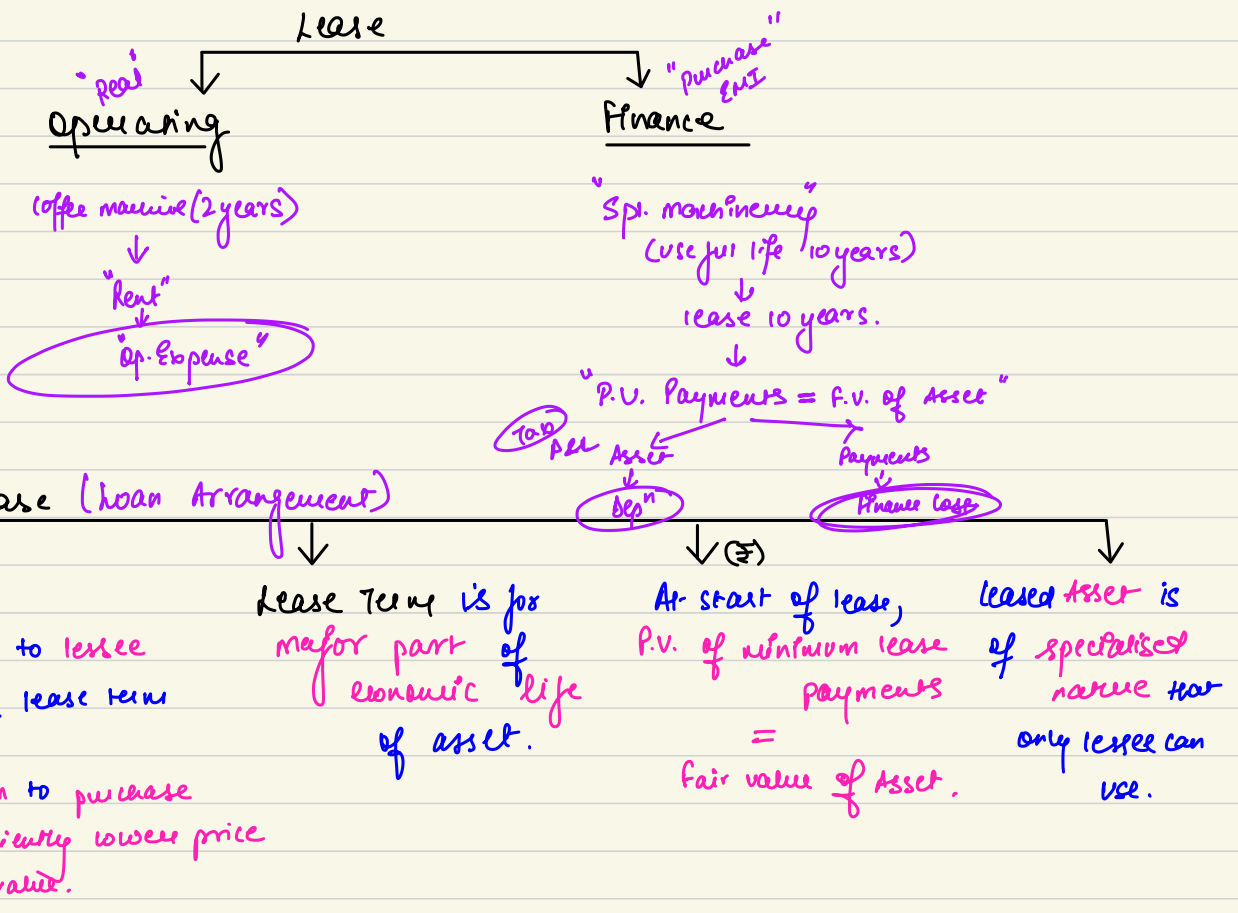 Lease
"Real"
"Purchase"
EMI
Operating
Finance
Coffee machine (2 years)
"Rent"
"Op. Expense"
"Spl. machinery"
(useful life 10 years)
lease 10 years.
"P.V. Payments = F.V. of Asset"
Asset
Payments
Depn
Finance Cost
ase (Loan Arrangement)
(₹)
to lessee
lease term
n to purchase
iently lower price
value.
Lease Term is for
major part of
economic life
of asset.
At start of lease,
P.V. of minimum lease
payments
=
Fair value of Asset.
Leased Asset is
of specialised
nature that
only lessee can
use.